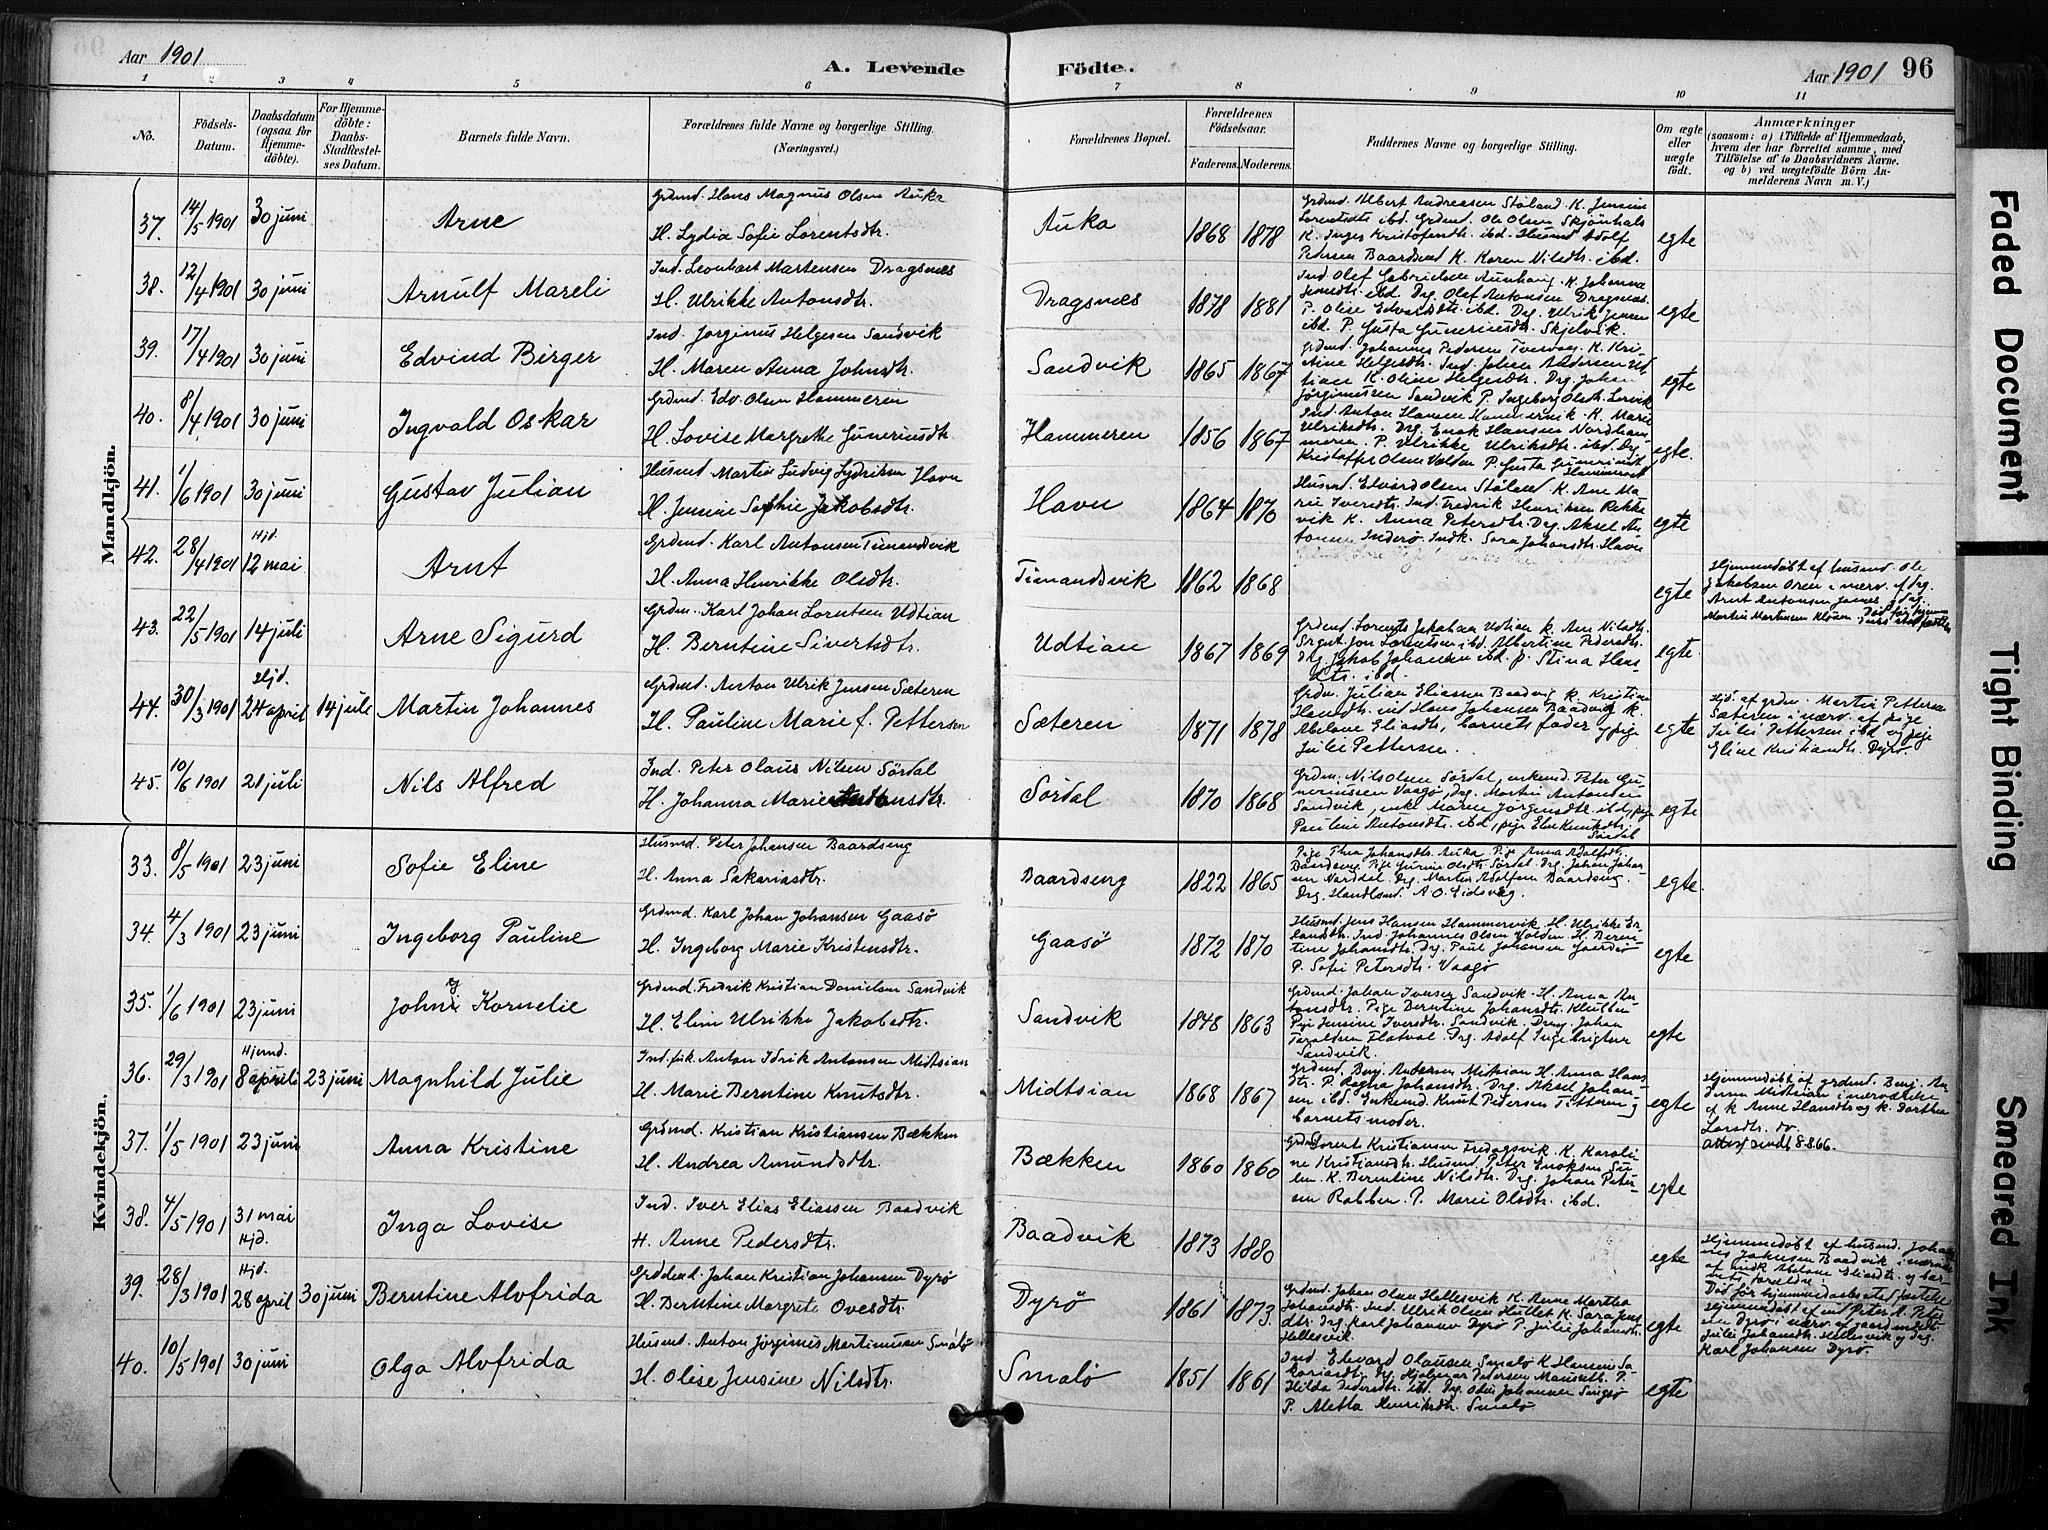 Aar 1901
A. Levende Födte.
Aar 1901 96
1 2 3 4 5 6 7 8 9 10 11
No.
Födsels-Datum.
Daabsdatum (ogsaa for Hjemmedöbte).
For Hjemmedöbte: Daabs-Stadfæstelses Datum.
Barnets fulde Navn.
Forældrenes fulde Navne og borgerlige Stilling. (Næringsvei.)
Forældrenes Bopæl.
Forældrenes Födselsaar.
Faderens. Moderens.
Faddernes Navne og borgerlige Stilling.
Om ægte eller uægte födt.
Anmærkninger
(saasom: a) i Tilfælde af Hjemmedaab, hvem der har forrettet samme, med Tilföielse af to Daabsvidners Navne. og b) ved uægtefödte Börn Anmelderens Navn m. V.)
Mandkjön.
37. 14/5 1901 30 juni Arne
Grdmd. Hans Magnus Olsen Auka
H. Lydia Sofie Lorentsdtr.
Auka 1868 1878
Grdmd. Albert Andreassen Stöland. K. Jensine
Lorentsdtr ibd. Grdmd. Ole Olsen Skjönhals
K. Inger Kristofersdtr. ibd. Husmd Adolf
Pedersen Baardsend K. Karen Nilsdtr ibd.
egte
38. 12/4 1901 30 juni Arnulf Mareli
Ind. Leonhart Martensen Dragsnes
H. Ulrikke Antonsdtr.
Dragsnæs 1878 1881
Ind Olef Gabrielsen Aunhaug. K. Johanna
ibd. Drg. Olef Antonsen Dragsnæs.
P. Olise Edvardsdtr. ibd. Drg. Ulrik Jensen
ibd. P. Gusta Guneriusdtr. Skjelvik.
egte
39. 17/4 1901 30 juni Edvind Birger
Ind. Jörginus Helgesen Sandvik
H. Maren Anna Johnsdtr.
Sandvik 1865 1867
Grdmd. Johannes Pedersen K. Kri
stine Helgesdtr. Ind. Johan Andersen Ud
tian K. Oline Helgesdtr. Drg Johan
Jörginussen Sandvik P. Ingeborg Olsdtr.
egte
40. 8/4 1901 30 juni Ingvald Oskar
Grdmd. Edv. Olsen Hammeren
H. Lovise Margrethe Guneriusdtr.
Hammeren 1856 1867
Ind. Anton Hansen Hammervik. K. Marie
Ulriksdtr. Drg. Enok Hansen Nordham
meren. P. Ulrikke Ulriksdtr. ibd. Drg
Kristoffer Olsen Valden P. Gusta Guneriusdtr
egte.
41. 1/6 1901 30 juni Gustav Julian
Husmd Martin Ludvig Lydriksen Havn
H. Jensine Sofhie Jakobsdtr.
Havn 1864 1870
Husmd. Edvard Olsen Stöland. K. Ane Ma
rie Iversdtr. Ind. Fredrik Henriksen Rekke
vik K. Anna Petersdtr. Drg. Aksel An
tonsen Inderö. Indk. Sara Johansdtr. Havn
egte
42. 28/4 1901 Hjd. 12 mai Arnt
Grdmd. Karl Antonsen Timandsvik
H. Anna Henrikke Olsdtr.
Timandsvik 1862 1868
egte
Hjemmedøbt af husmd. Ole
Jakobsen Oren i nærv. af drg.
Arnt Antonsen og drg.
Martin Martinsen
43. 22/5 1901 14 juli Arne Sigurd
Grdm. Karl Johan Lorntsen Udtian
H. Berntine Sivertsdtr.
Udtian 1867 1869
Grdmd. Lorents Jakobsen Udtian k. Ane Nilsdtr.
Jon Lorentsen ibd. Albertine Pedersdtr.
Drg. Jakob Johansen ibd. p. Stina Hans
dtr. ibd.
egte.
44. 30/3 1901 Hjd. 24 april 14 juli Martin Johannes
Grdmd. Anton Ulrik Jensen Sæteren
H. Pauline Marie f. Pettersen
Sæteren 1871 1878
Grdm. Julian Eliassen Baadvig k. Kristian
Hansdtr. ind Hans Johansen Baadvig k.
Abelone Eliasdtr, barnets fader og pige
Julie Pettersen.
egte
Hjd. af grdm. Martin Pettersen
Sæteren i nærv. af pige
Julie Pettersen ibd og pige
Eline Kristiansdtr. Dyrö.
45. 10/6 1901 21 juli Nils Alfred
Ind. Peter Olaus Nilsen Sördal
H. Johanna Marie Antonsdtr.
Sördal 1870 1868
Grdm. Nils Olsen Sördal, enkemd. Peter Gu
neriussen Vaagö, drg. Martin Antonsen
Sandvik, enke Maren Jörgensdtr. ibd, pige
Pauline Antonsdtr. ibd, pige Elen Knutsdtr.
Sördal
egte
Kvindekjön.
33. 8/5 1901 23 juni Sofie Eline
Husmd. Peter Johansen Baardseng
H. Anna Sakariasdtr.
Baardseng 1822 1865
Pige Thea Johansdtr. Auka Pige Anna Adolfsdtr.
Baardseng Pige Gurine Olsdtr. Sördal. Drg. Johan Johan
sen Norddal. Drg. Martin Adolfsen Baardseng.
Drg. Handlsmd. A. O. Eidsvåg.
egte.
34. 4/3 1901 23 juni Ingeborg Pauline
Grdmd. Karl Johan Johansen Gaasö
H. Ingeborg Marie Kristensdtr.
Gaasö 1872 1870
Husmd. Jens Hansen Hammervik. H. Ulrikke Er
landsdtr. Ind. Johannes Olsen Volden H. Beren
tine Johansdtr. Drg. Paul Johansen
P. Sofie Petersdtr. Vaagö
egte
35. 1/6 1901 23 juni Johny Kornelie
Grdmd. Fredrik Kristian Danielsen Sandvik
H. Elen Ulrikke Jakobsdtr.
Sandvik 1848 1863
Grdmd. Johan Iversen Sandvik. H. Anna An
tonsdtr. Pige Berntine Johansdtr.
Pige Jensine Iversdtr. Sandvik. Johan
Taraldsen Flatval. Drg. Adolf Ingebrigtsen
Sandvik.
egte
36. 29/3 1901 Hjemd. 8 april 23 juni Magnhild Julie
Ind. fisk. Anton Idrik Antonsen Midtsian
H. Marie Berntine Knutsdtr.
Midtsian 1868 1867
Grdmd. Benj. Andersen Mitsian H. Anna Hans
dtr. P. Ragna Johansdtr. Drg. Aksel Johan
sen ibd. Enkemd. Knut Pedersen Titteren og
barnets moder.
egte
Hjemmedøbt af grdmd. Benj. An
dersen Mitsian i nærværelse
af k Anne Hansdtr og k. Dorthea
Larsdtr. do.
attest sendt 8.8.66.
37. 1/5 1901 23 juni Anna Kristine
Grdmd. Kristian Kristiansen Bækken
H. Andrea Amundsdtr.
Bækken 1860 1860
Grdmd Lorents Kristiansen Fredagsvik. K. Karoli
ne Kristiansdtr. Husmd. Peter Enoksen Su
len. K. Berntine Nilsdtr. Drg. Johan Peter
sen Rabben. P. Marie Olsdtr. ibd.
egte
38. 4/5 1901 31 mai Hjd. Inga Lovise
Ind. Iver Elias Eliassen Baadvik
H. Anne Pedersdtr.
Baadvik 1873 1880
egte
Hjemmedøbt af husmd. Johan
nes Jakobsen Baadvik i nærv.
af indk Abelone Eliasdtr. og bar
nets forældre.
Död för hjemmedaabens stadfæstelse
39. 28/3 1901 Hjd. 28 april 30 juni Berntine Alvfrida
Grdmd. Johan Kristian Johansen Dyrö
H. Berntine Margrete Ovesdtr.
Dyrö 1861 1873.
Grdmd. Johan Olsen Hellesvik K. Anne Martha
Johansdtr. Ind. Ulrik Olsen Hullet K. Sara Jens
dtr. Drg. Karl Johansen Dyrö P. Julie Johansdtr.
Hellesvik.
egte
Hjemmedøbt af ind Peter A. Peter
sen Dyrö i nærv. af
Julie Johansdtr. Hellesvik og drg.
Karl Johansen Dyrö.
40. 10/5 1901 30 juni Olga Alvfrida
Husmd. Anton Jörginus Martinussen Smalö
H. Olise Jensine Nilsdtr.
Smalö 1851 1861
Ind. Edvard Olaussen Smalö K Hansine Sa
kariasdtr. Drg. Hjalmar Pedersen P.
Hilda Pedersdtr. ibd. Drg. Odin Johannes
P. Metta Henriksdtr. Smalö
egte
Faded Document
Tight Binding
Smeared Ink